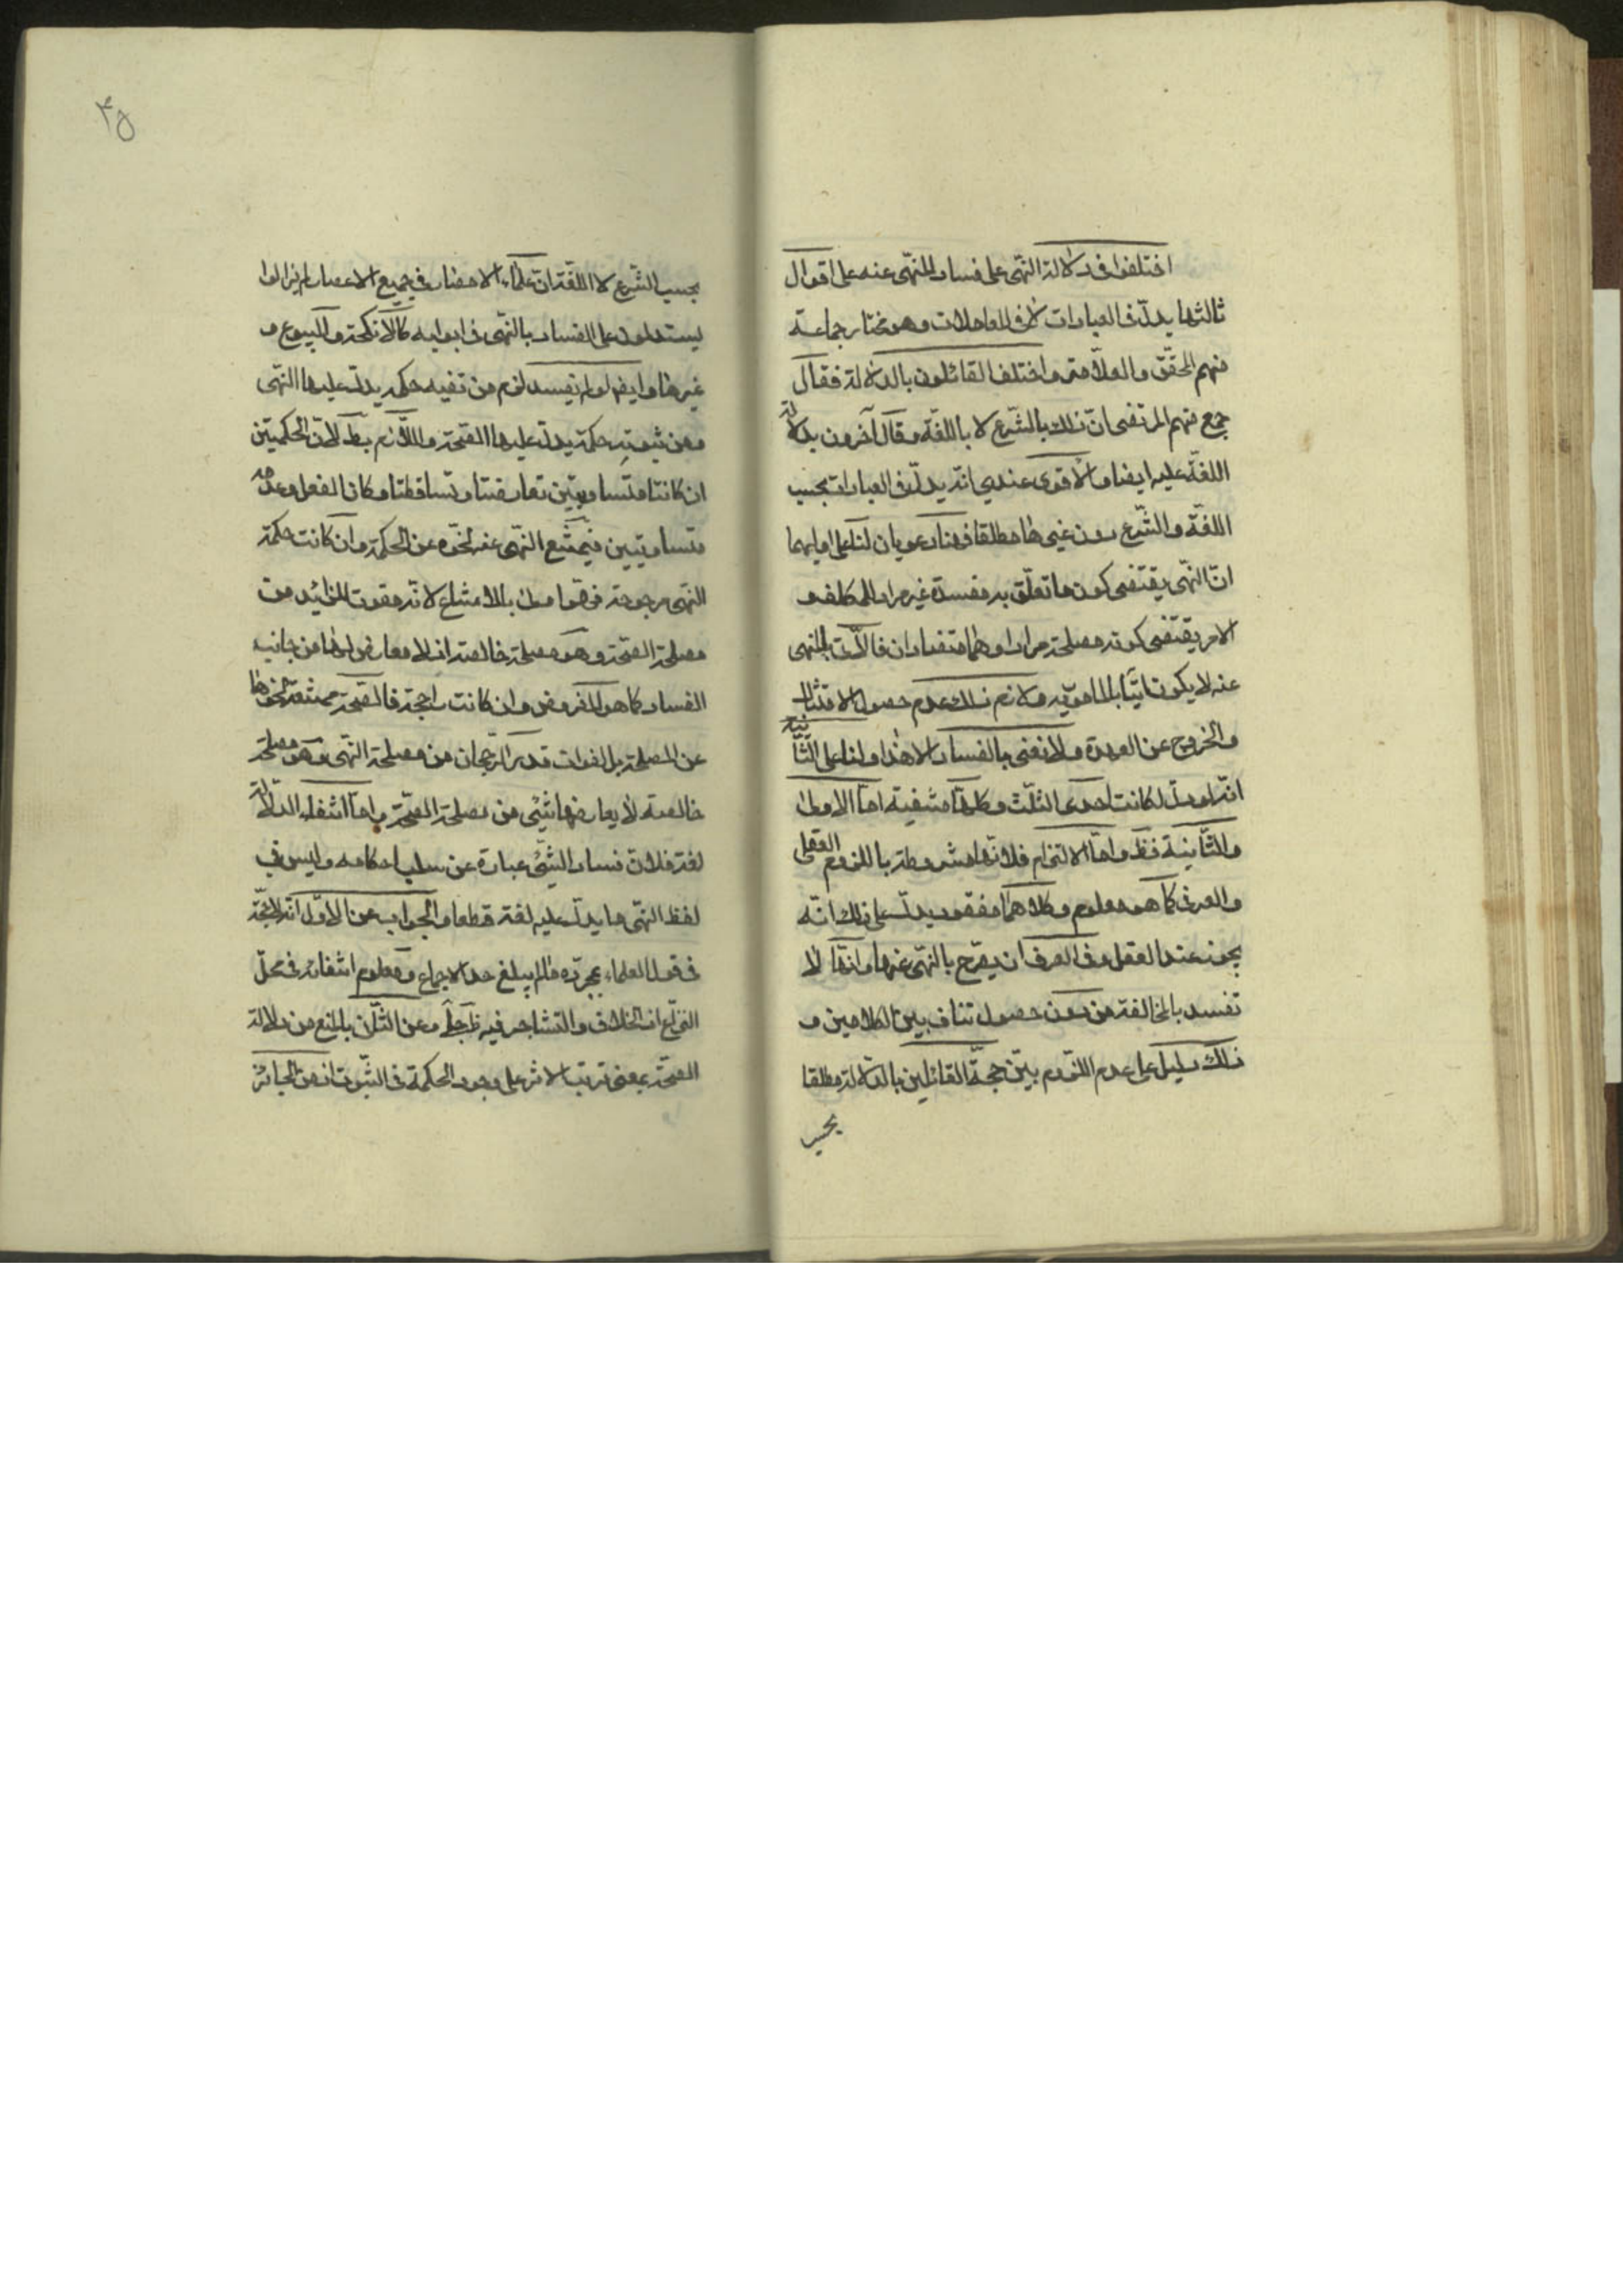 اختلفوا فى دلالة النّهى على فساد المنهىّ عنه على اقوال
ثالثها يدلّ فى العبادات لا فى المعاملات وهو مختار جماعة
منهم المحقّق والعلّامة واختلف القائلون بالدلالة فقال
جمع منهم المرتضى انّ ذلك بالشّرع لا باللغة وقال آخرون بدلالة
اللغة عليه ايضا والاقوى عندى انّه يدلّ فى العبادات بحسب
اللغة والشّرع دون غيرها مطلقا فهنا دعويان لنا على اوليهما
انّ النّهى يقتضى كون ما تعلّق به مفسدة غير مراد للمكلف و
الامر يقتضى كونه مصلحة مرادا وهما متضادان فالآتى بالمنهى
عنه لا يكون آتيا بالمامور به ولازم ذلك عدم حصول الامتثال
والخروج عن العهدة ولا نعنى بالفساد الا هذا ولنا على الثّانية
انّه لو دلّ لكانت احدى الثلث وكلّها منتفية امّا الاولى
والثّانية فظ وامّا الالتزام فلانّها مشروطة باللزوم العقلى
والعرفى كما هو معلوم وكلاهما مفقود يدلّ على ذلك انّه
يجوز عند العقل وفى العرف ان يصرّح بالنّهى عنها وانّها لا
تفسد بالمخالفة من دون حصول تناف بين الكلامين و
ذلك دليل على عدم اللّزوم بيّن حجّة القائلين بالدّلالة مطلقا
بحسب
۴۵
بحسب الشّرع لا اللّغة انّ علماء الامصار فى جميع الاعصار لم يزالوا
يستدلون على الفساد بالنّهى فى ابوابه كالانكحة والبيوع و
غيرها وايضا لو لم يفسد لزم من نفيه حكمة يدلّ عليها النّهى
ومن ثبوته حكمة يدلّ عليها الصّحة واللّازم بط لانّ الحكمتين
ان كانتا متساويتين تعارضتا وتساقطتا وكان الفعل وعدمه
متساويين فيمتنع النّهى عنه لخلوّه عن الحكمة وان كانت حكمة
النّهى مرجوحة فهو اولى بالامتناع لانّه مفوّت للزائد من
مصلحة الصّحة وهو مصلحة خالصة اذ لا معارض لها من جانب
الفساد كما هو المفروض وان كانت راجحة فالصّحة ممتنعة لخلوّها
عن المصلحة بل لفوات قدر الرّجحان من مصلحة النّهى وهو مصلحة
خالصة لا يعارضها شىء من مصلحة الصّحة وامّا انتفاء الدلالة
لغة فلانّ فساد الشّىء عبارة عن سلب احكامه وليس فى
لفظ النّهى ما يدلّ عليه لغة قطعا والجواب عن الاوّل انّه لا حجّة
فى قول العلماء بمجرّده ما لم يبلغ حدّ الاجماع ومعلوم انتفائه فى محلّ
النّزاع اذ الخلاف والتشاجر فيه ظ جلىّ وعن الثّانى بالمنع من دلالة
الصّحة بمعنى ترتب الاثر على وجود الحكمة فى الثّبوت اذ من الجائز